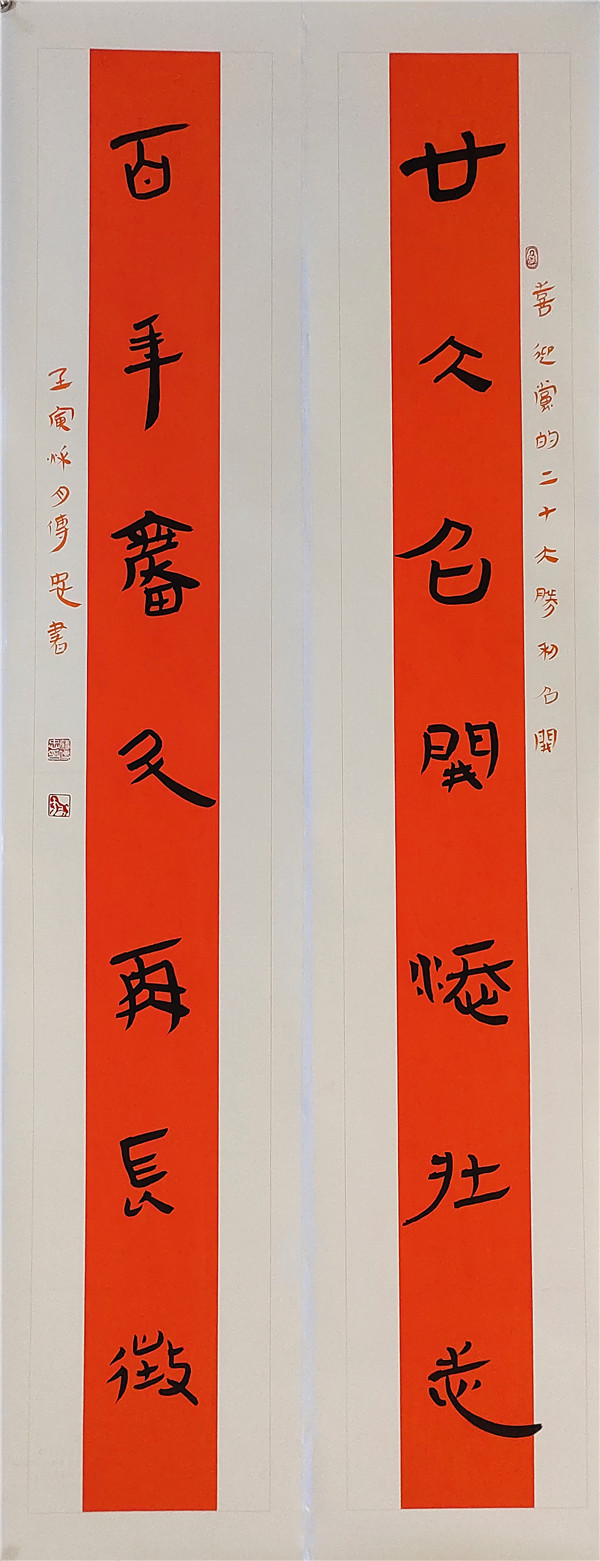 喜迎黨的二十大勝利召開
廿大召開添壯志
百年奮再長徵
壬寅秌月傳書